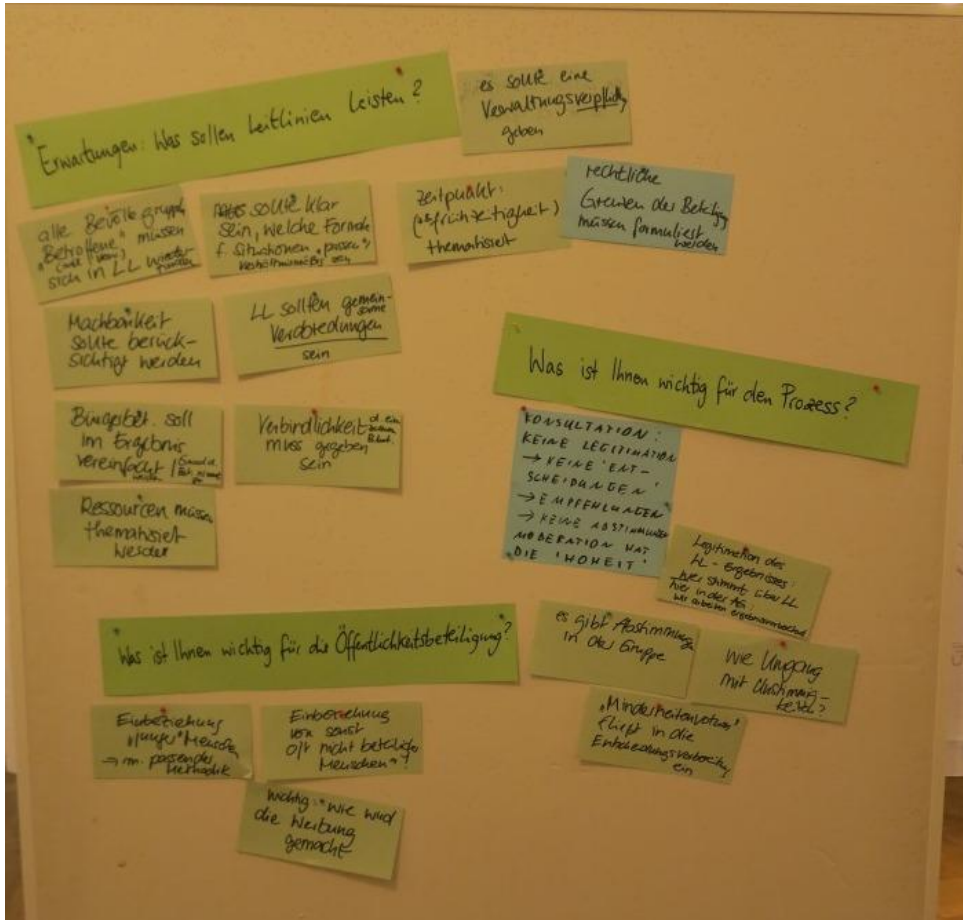 Erwartungen: Was sollen Leitlinien leisten?
es sollte eine
Verwaltungsverpflichtg
geben
alle Bevölk.gruppen
"Betroffene" müssen
sich in LL wieder
finden
sollte klar
sein, welche Formate
f. Situationen "passen"
Verhältnismäßig sein
Zeitpunkt:
(Frühzeitigkeit)
thematisiert
rechtliche
Grenzen der Beteiligg
müssen formuliert
werden
Machbarkeit
sollte berück-
sichtigt werden
LL sollten gemein-
same
Verabredungen
sein
Bürgerbet. soll
im Ergebnis
vereinfacht
werden
Verbindlichkeit
muss gegeben
sein
Ressourcen müssen
thematisiert
werden
Was ist Ihnen wichtig für den Prozess?
KONSULTATION:
KEINE LEGITIMATION
→ KEINE 'ENT-
SCHEIDUNGEN'
→ EMPFEHLUNGEN
→ KEINE ABSTIMMUNGEN
MODERATION HAT
DIE 'HOHEIT'
Legitimation des
LL-Ergebnisses:
wer stimmt über LL
hier in der AG:
wir arbeiten
es gibt Abstimmungen
in der Gruppe
Wie Umgang
mit Unstimmig-
keiten?
"Minderheitenvotum"
fließt in die
Entscheidungsvorbereitung
ein
Was ist Ihnen wichtig für die Öffentlichkeitsbeteiligung?
Einbeziehung
"junger" Menschen
→ m. passender
Methodik
Einbeziehung
von sonst
oft nicht beteiligten
Menschen
wichtig: "wie wird
die Werbung
gemacht